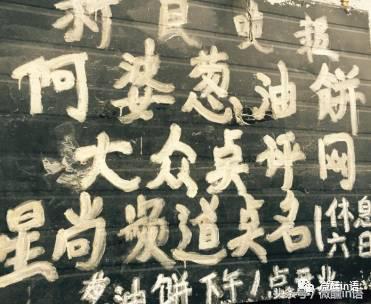 新民晚报
何婆葱油饼
大众点评网
星尚频道头名
休息
六日
葱油饼下午1点
微醺in语